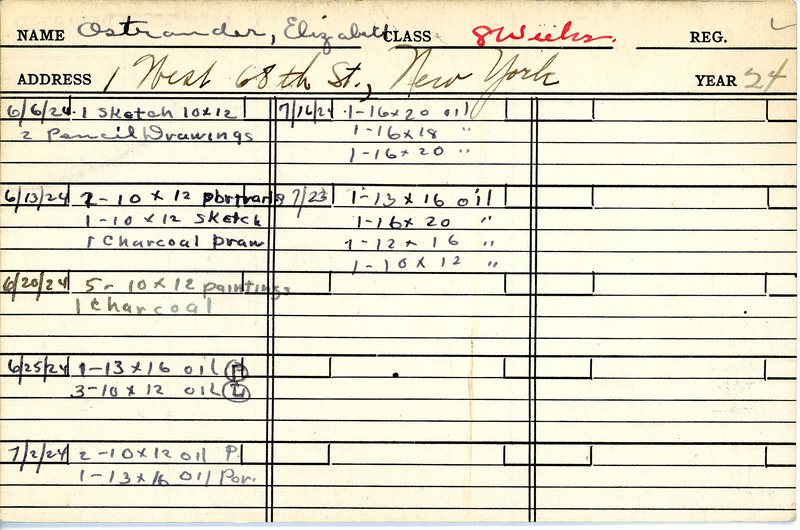 NAME Ostrander, Elizabeth CLASS 8 Weeks. REG.
ADDRESS 1 West 68th St., New York YEAR 24
6/6/24 1 Sketch 10x12
2 Pencil Drawings
6/13/24 2-10 x 12 portraits
1-10 x 12 sketch
1 Charcoal Draw
6/20/24 5- 10 x 12 paintings
1 Charcoal
6/25/24 1-13x16 oil P
3-10 x 12 oil L
7/2/24 2-10x12 oil P.
1-13x16 oil Por.
7/16/24 1-16x20 oil
1-16x18 "
1-16x20 "
7/23 1-13 x 16 oil
1-16x 20 "
1-12 x 16 "
1-10 x 12 "